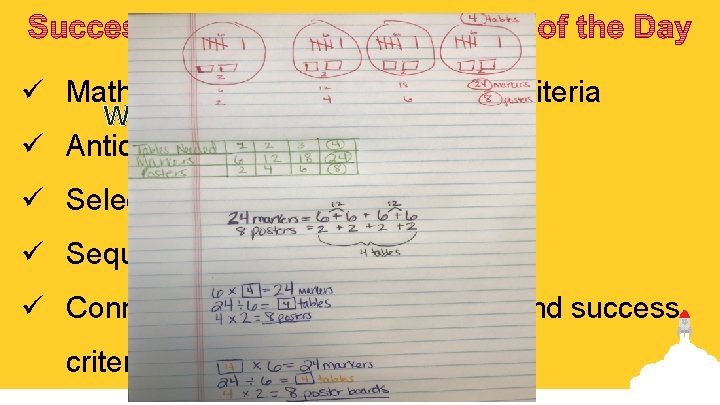 Succes of the Day
4 tables
6 6 6 6
2 2 2 2
6 12 18 24 markers
2 4 6 8 posters
✓ Math iteria
W
✓ Antic
Tables Needed 1 2 3 4
Markers 6 12 18 24
Posters 2 4 6 8
✓ Selec
12 12
24 markers = 6 + 6 + 6 + 6
8 posters = 2 + 2 + 2 + 2
4 tables
✓ Sequ
6 x 4 = 24 markers
24 ÷ 6 = 4 tables
4 x 2 = 8 posters
✓ Conn nd success
criter
4 x 6 = 24 markers
24 ÷ 6 = 4 tables
4 x 2 = 8 poster boards